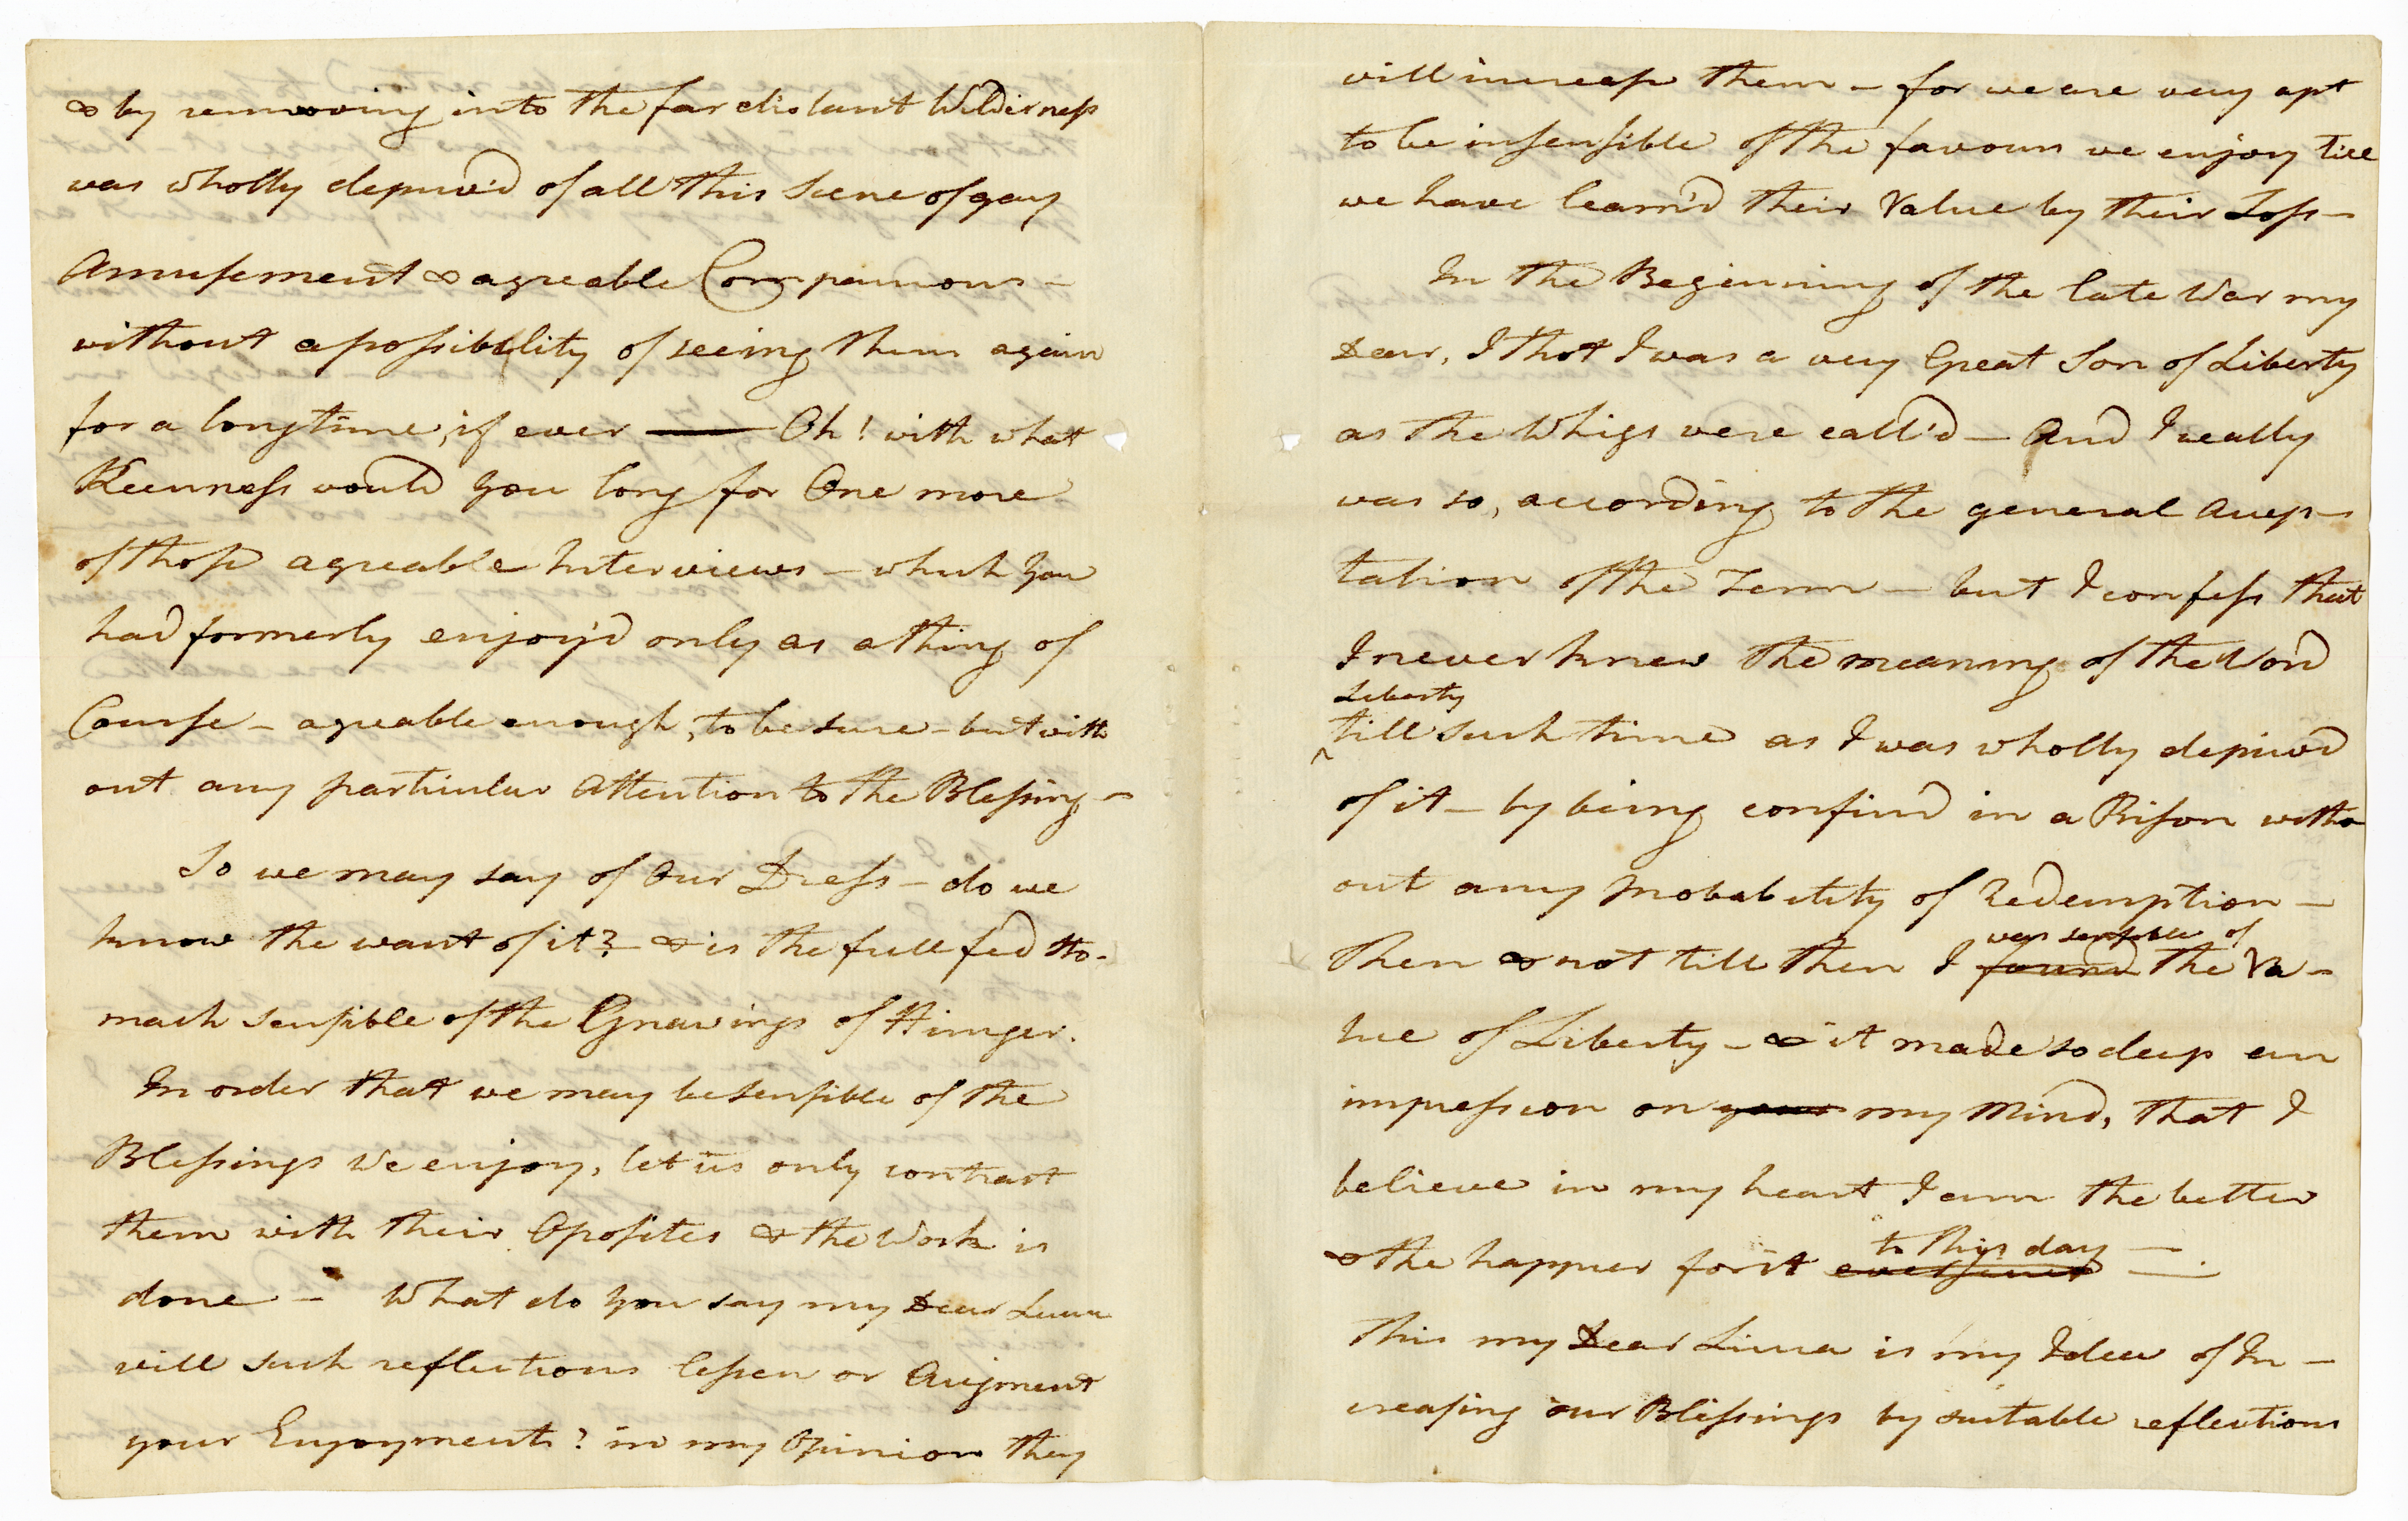 & by removing into the far distant Wilderness
was wholly depriv'd of all this Scene of gay
Amusement & agreable Companions –
without a possibility of seeing them again
for a long time, if ever —— Oh! with what
Keenness would you long for One more
of those agreable Interviews – which you
had formerly enjoy'd only as a thing of
Course – agreable enough, to be sure – but with
out any particular Attention to the Blessing –
So we may say of Our Dress – do we
know the want of it? – & is the full fed Sto-
mach sensible of the Gnawings of Hunger.
In order that we may be sensible of the
Blessings we enjoy, let us only contrast
them with their Oposites & the Work is
done – What do you say my Dear
will such reflections lessen or Augment
your Enjoyments? in my Opinion they
will increase them – for we are very apt
to be insensible of the favours we enjoy till
we have learn'd their Value by their Loss –
In the Beginning of the late War my
Dear, I thot I was a very Great Son of Liberty
as the Whigs were call'd – And I really
was so, according to the general Accep-
tation of the Term – but I confess that
I never knew the meaning of the Word
Liberty
till such time as I was wholly depriv'd
of it – by being confin'd in a Prison with-
out any probability of Redemption –
was sensible of
Then & not till then I found the Va-
lue of Liberty – & it made so deep an
impression on your my Mind, that I
believe in my heart I am the better
to this day —
& the happier for it ever since —.
This my Dear is my Idea of In-
creasing our Blessings by suitable reflections